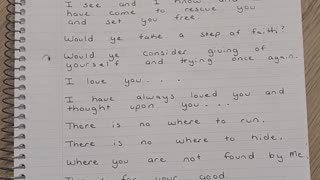 I see and I know
have come to rescue you
and set you free.
Would ye take a step of faith?
Would ye consider giving of
yourself and trying once again.
I love you . . . .
I have always loved you and
thought upon you . . . .
There is no where to run,
There is no where to hide,
Where you are not found by Me,
for your good